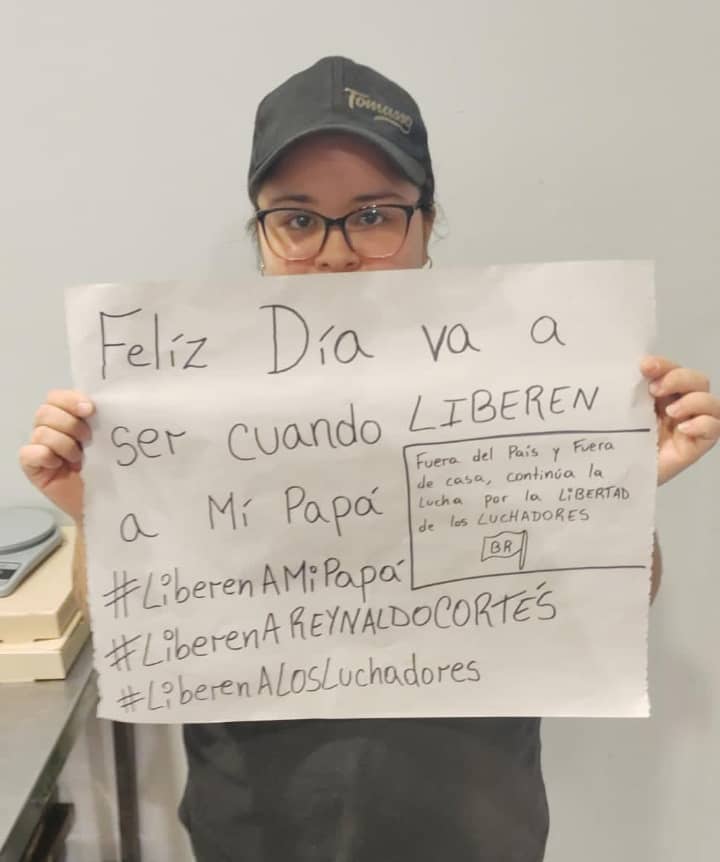 Tomasso
Felíz Día va a
ser cuando LIBEREN
a Mí Papá
Fuera del País y Fuera
de casa, continúa la
Lucha por la LIBERTAD
de los LUCHADORES
BR
#LiberenAMiPapá
#LiberenAREYNALDOCORTÉS
#LiberenALOSLuchadores